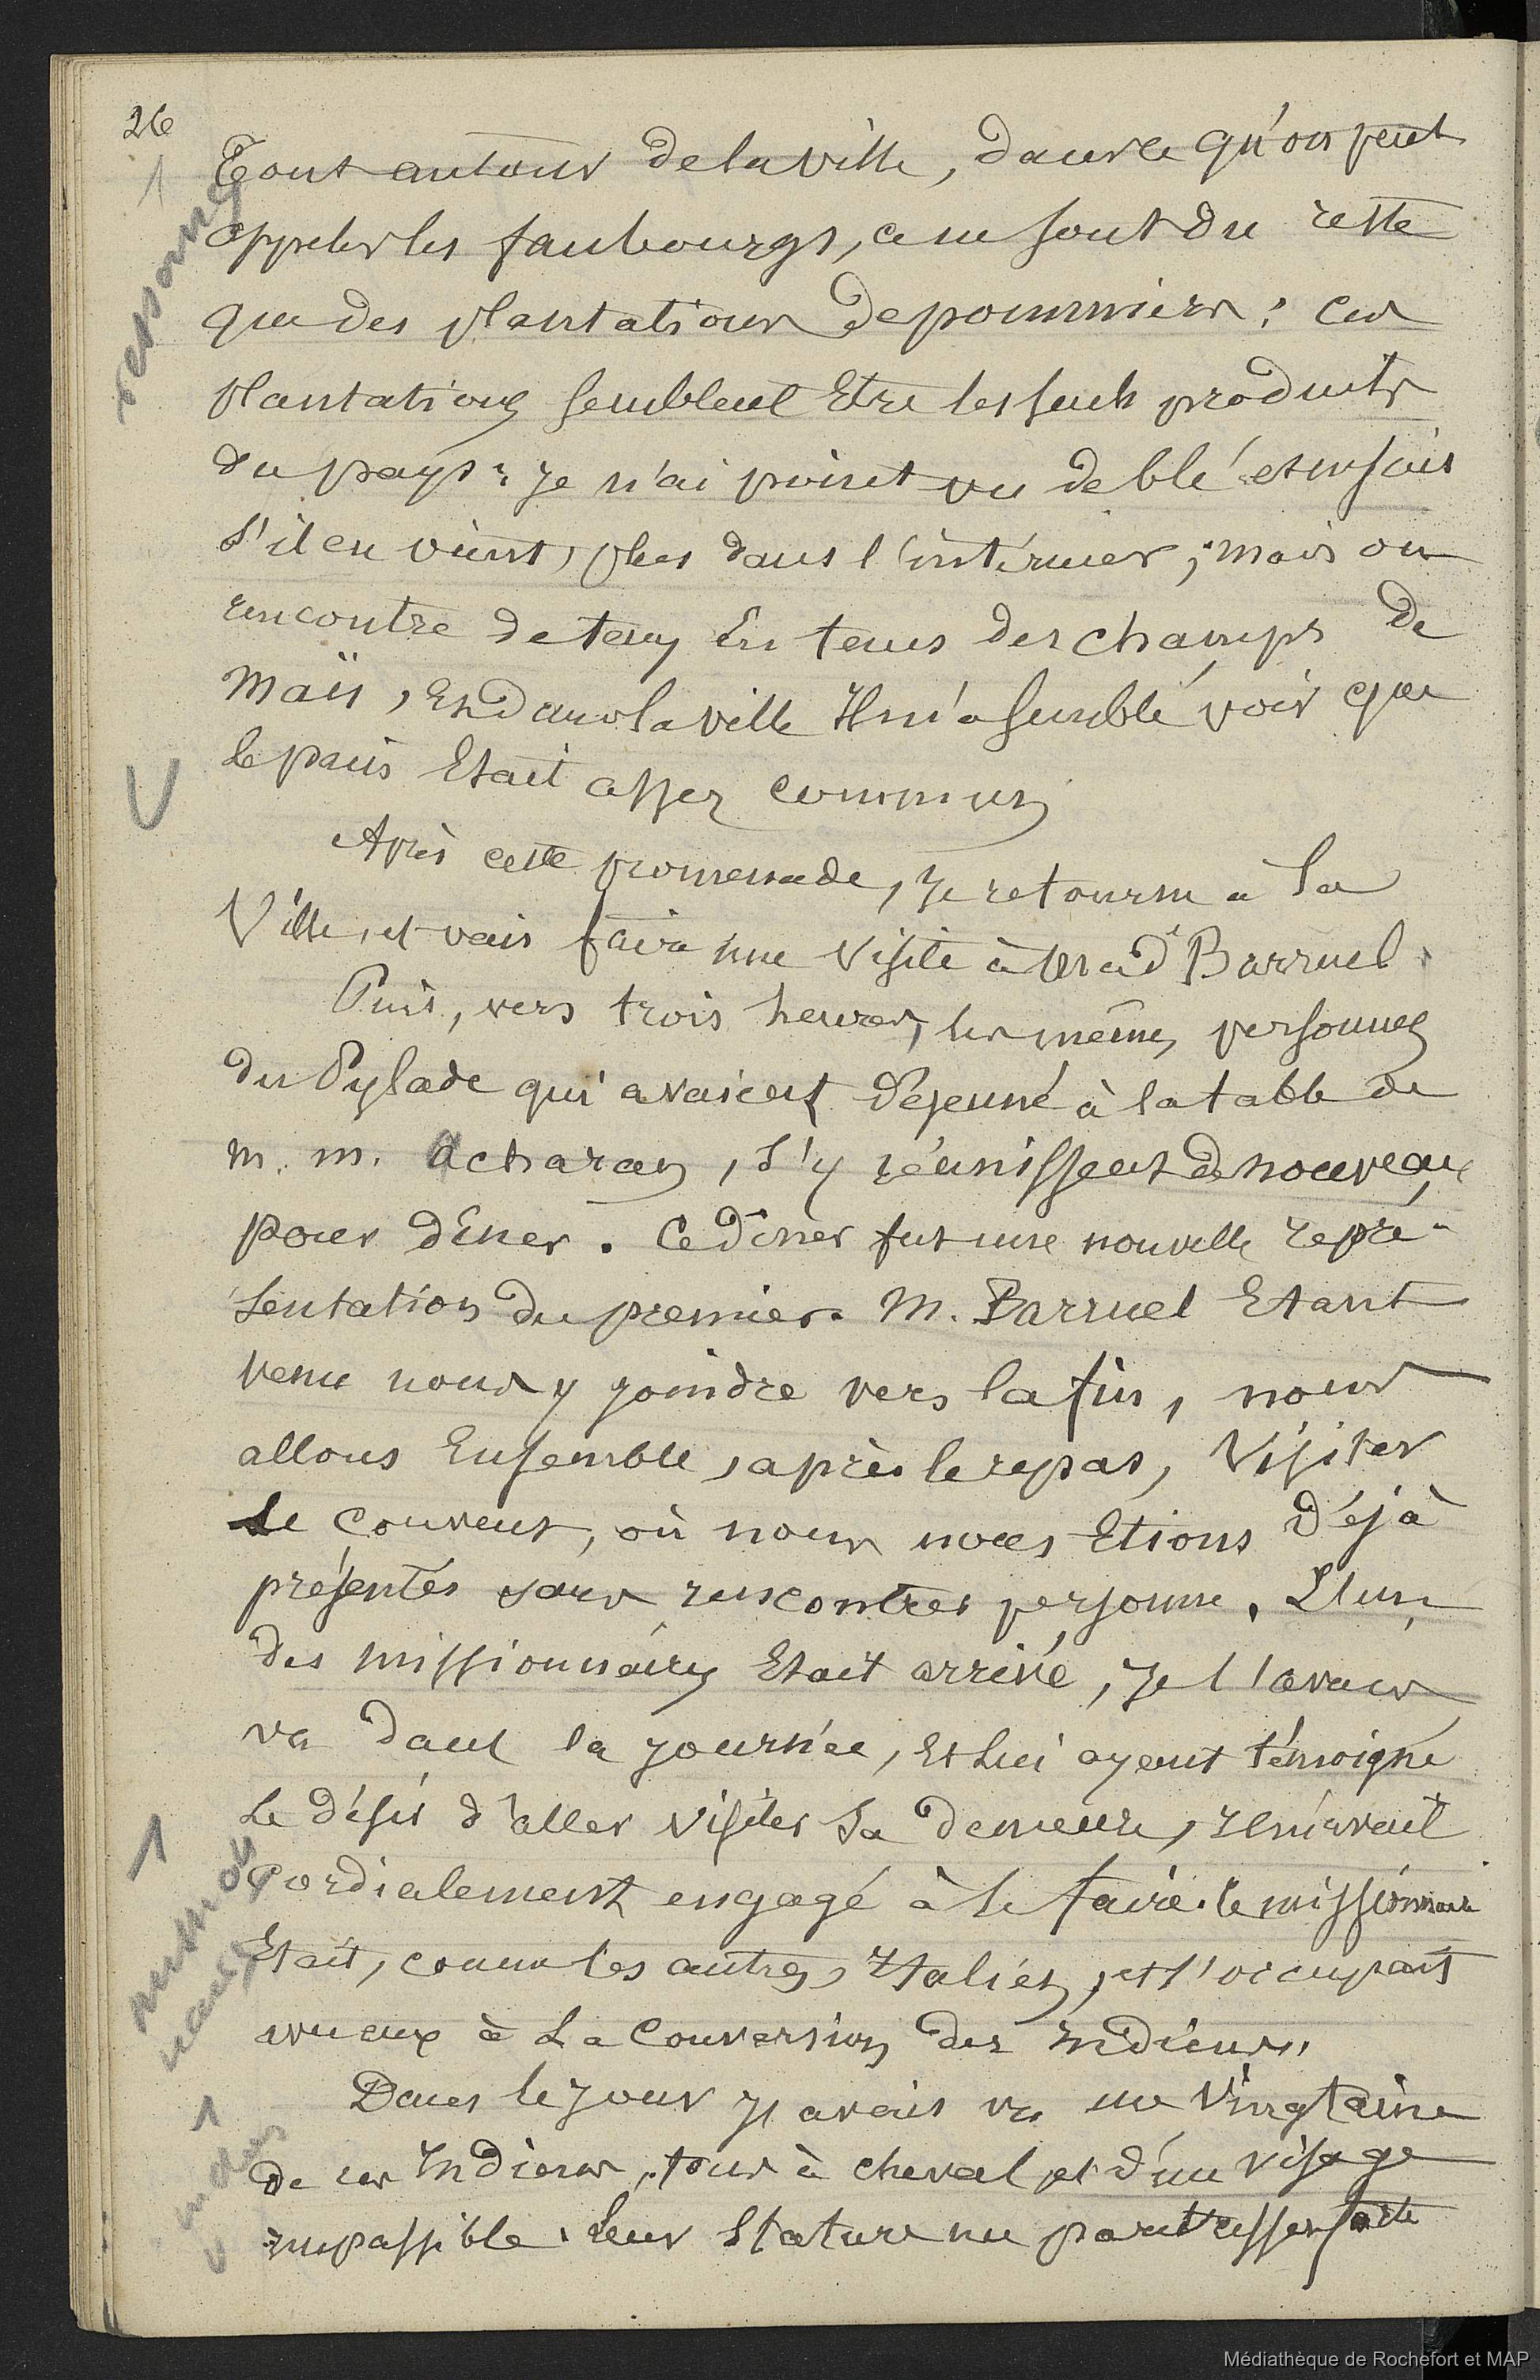 26
Tout autour de la ville, dans ce qu'on peut
appeler les faubourgs, ce ne sont du reste
que des plantations de pommiers ; ces
plantations semblent être les seuls produits
du pays ; je n'ai point vu de blé et ne sais
s'il en vient plus dans l'intérieur ; mais on
rencontre de tems en tems des champs de
maïs, et dans la ville il m'a semblé voir que
le pain était assez commun
Après cette promenade, je retourne à la
Ville, et vais faire une visite à Mad. Barruel.
Puis, vers trois heures, les mêmes personnes
du Pylade qui avaient déjeuné à la table de
m. m. Acharan, s'y réunissent de nouveau
pour diner. Ce diner fut une nouvelle repré-
sentation du premier. M. Barruel étant
venu nous y joindre vers la fin, nous
allons ensemble, après le repas, visiter
le couvent, où nous nous étions déjà
présentés sans rencontrer personne. L'un
des missionnaires était arrivé, je l'avais
vu dans la journée, et lui ayant témoigné
le désir d'aller visiter sa demeure, il m'avait
cordialement engagé à le faire. Ce missionnaire
était, comme les autres, Italien, et s'occupait
à la conversion des Indiens.
Dans le jour j'avais vu une vingtaine
de ces Indiens, tous à cheval et d'un visage
impassible. Leur stature me parut